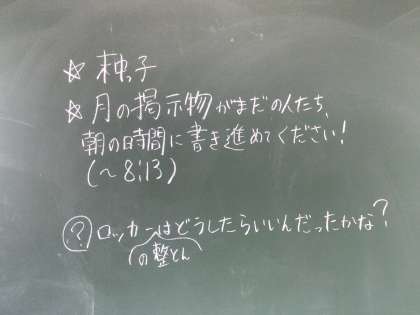 ☆ 柚っ子
☆ 月の掲示物がまだの人たち、
朝の時間に書き進めてください!
(〜8:13)
? ロッカーの整とんはどうしたらいいんだったかな?